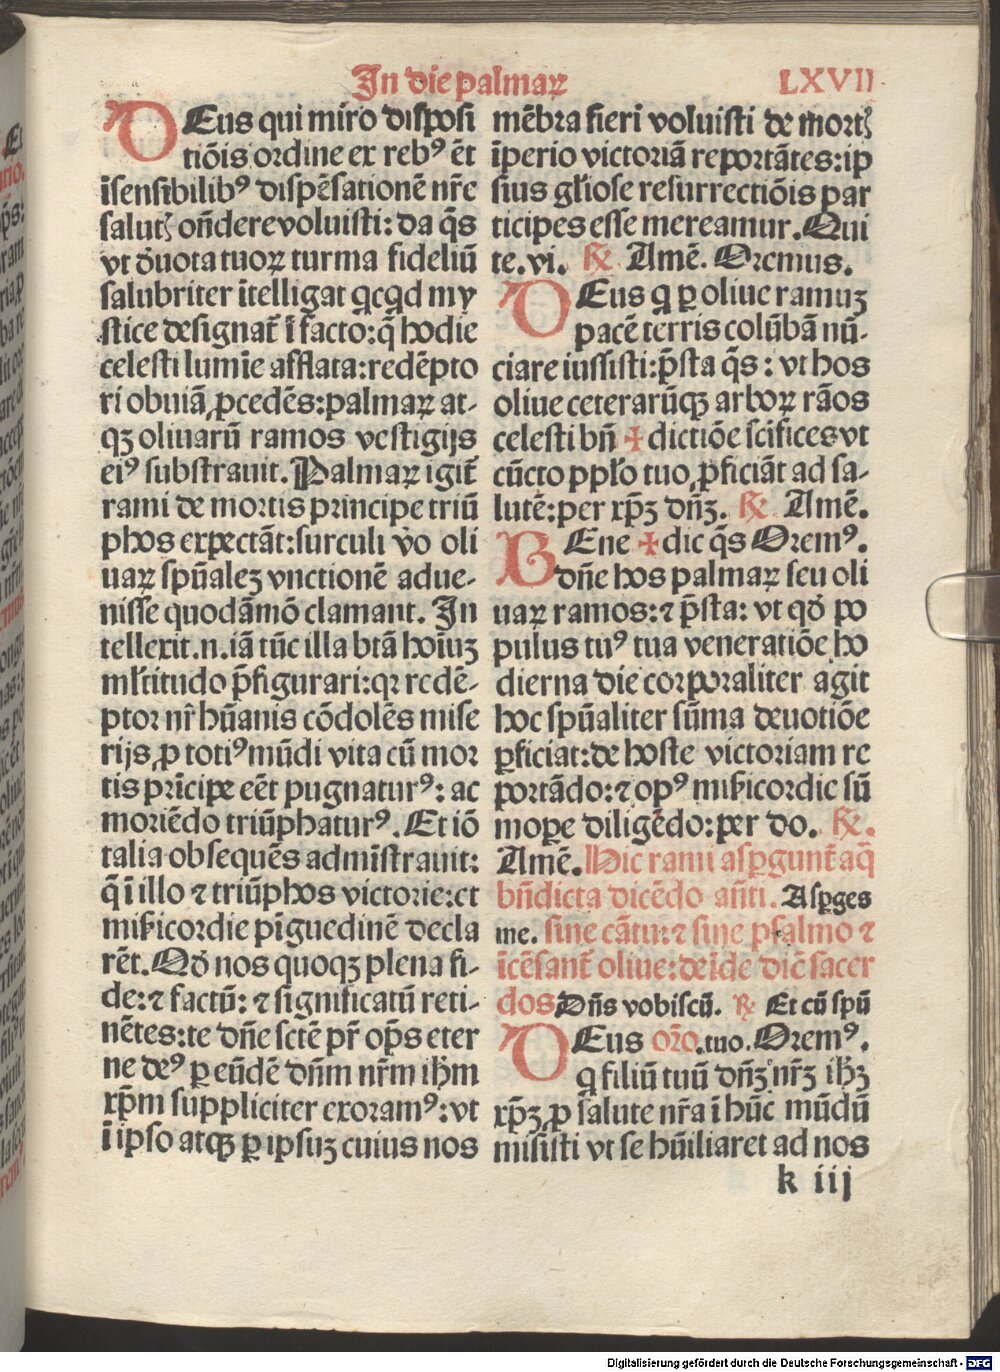 In die palmaꝝ
LXVII
DEus qui miro disposi
tiõis ordine ex rebꝰ ẽt
ĩsensibilibꝰ dispẽsationẽ nr̃e
salutꝭ oñdere voluisti: da q̃s
vt ďuota tuoꝝ turma fideliũ
salubriter ĩtelligat qͥcqͥd my
stice designat̃ ĩ facto: q̃ hodie
celesti lumĩe afflata: redẽpto
ri obuiã ꝓcedẽs: palmaꝝ at-
qꝫ oliuarũ ramos vestigijs
eiꝰ substrauit. Palmaꝝ igit̃
rami de mortis principe triũ
phos expectãt: surculi vͦo oli
uaꝝ spũalez vnctionẽ adue-
nisse quodãmõ clamant. In
tellexit .n. iã tũc illa btã hoĩuꝫ
ml̃titudo p̃figurari: qꝛ redẽ-
ptor nr̃ hũanis cõdolẽs mise
rijs ꝓ totiꝰ mũdi vita cũ mor
tis prĩcipe eẽt pugnaturꝰ: ac
moriẽdo triũphaturꝰ. Et iõ
talia obsequẽs admĩstrauit:
q̃ ĩ illo ⁊ triũphos victorie: et
mĩsicordie pĩguedinẽ decla
rẽt. Qď nos quoqꝫ plena fi-
de: ⁊ factũ: ⁊ significatũ reti-
nẽtes: te dñe sctẽ pr̃ op̃s eter
ne deꝰ ꝑ eũdẽ dñm nr̃m ihm̃
xp̃m suppliciter exoramꝰ: vt
ĩ ipso atqꝫ ꝑ ipsuꝫ cuius nos
mẽbra fieri voluisti de mortꝭ
ĩperio victoriã reportãtes: ip
sius gl̃iose resurrectiõis par
ticipes esse mereamur. Qui
te. vi. ℟. Amẽ. Oremus.
DEus qͥ ꝑ oliue ramuꝫ
pacẽ terris colũbã nũ-
ciare iussisti: p̃sta q̃s: vt hos
oliue ceterarũqꝫ arboꝝ rãos
celesti bñ ✠ dictiõe scĩfices vt
cũcto ppl̃o tuo ꝓficiãt ad sa-
lutẽ: per xp̃ꝫ dñꝫ. ℟. Amẽ.
BEne ✠ dic q̃s Oremꝰ.
dñe hos palmaꝝ seu oli
uaꝝ ramos: ⁊ p̃sta: vt qď po
pulus tuꝰ tua veneratiõe ho
dierna die corporaliter agit
hoc spũaliter sũma deuotiõe
ꝑficiat: de hoste victoriam re
portãdo: ⁊ opꝰ mĩsicordie sũ
mope diligẽdo: per do. ℟.
Amẽ. Hic rami asꝑgunt̃ aq̃
bñdicta dicẽdo añti. Asꝑges
me. sine cãtu: ⁊ sine psalmo ⁊
ĩcẽsant̃ oliue: deĩde diẽ sacer
dos Dñs vobiscũ. ℟ Et cũ spũ
DEus or̃o. tuo. Oremꝰ.
qͥ filiũ tuũ dñꝫ nr̃ꝫ ihꝫ̃
xp̃ꝫ ꝓ salute nr̃a ĩ hũc mũdũ
misisti vt se hũiliaret ad nos
k iij
Digitalisierung gefördert durch die Deutsche Forschungsgemeinschaft - DFG